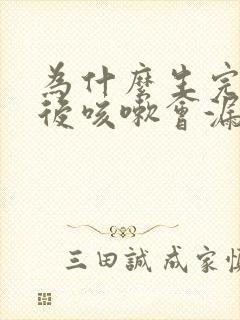 為什麼生完
後咳嗽會漏
三田誠 成家慎